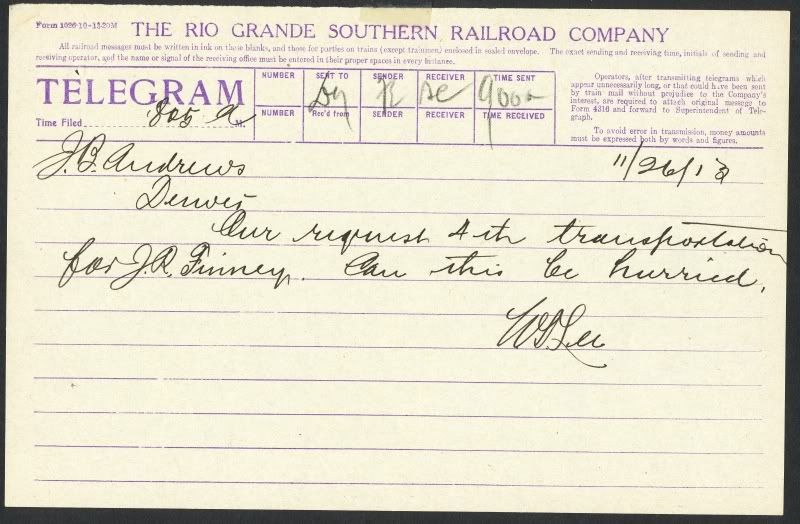 Form 1026-10-13-20M
THE RIO GRANDE SOUTHERN RAILROAD COMPANY
All railroad messages must be written in ink on these blanks, and those for parties on trains (except trainmen) enclosed in sealed envelope. The exact sending and receiving time, initials of sending and
receiving operator, and the name or signal of the receiving office must be entered in their proper spaces in every instance.
TELEGRAM
Time Filed 805 A M.
NUMBER SENT TO SENDER RECEIVER TIME SENT
Dy R De 900a
NUMBER Rec'd from SENDER RECEIVER TIME RECEIVED
Operators, after transmitting telegrams which
appear unnecessarily long, or that could have been sent
by train mail without prejudice to the Company's
interest, are required to attach original message to
Form 4316 and forward to Superintendent of Tele-
graph.
To avoid error in transmission, money amounts
must be expressed both by words and figures.
J.B. Andrews 11/26/13
Denver
Our request 4th transportation
for J.R. Finney. Can this be hurried.